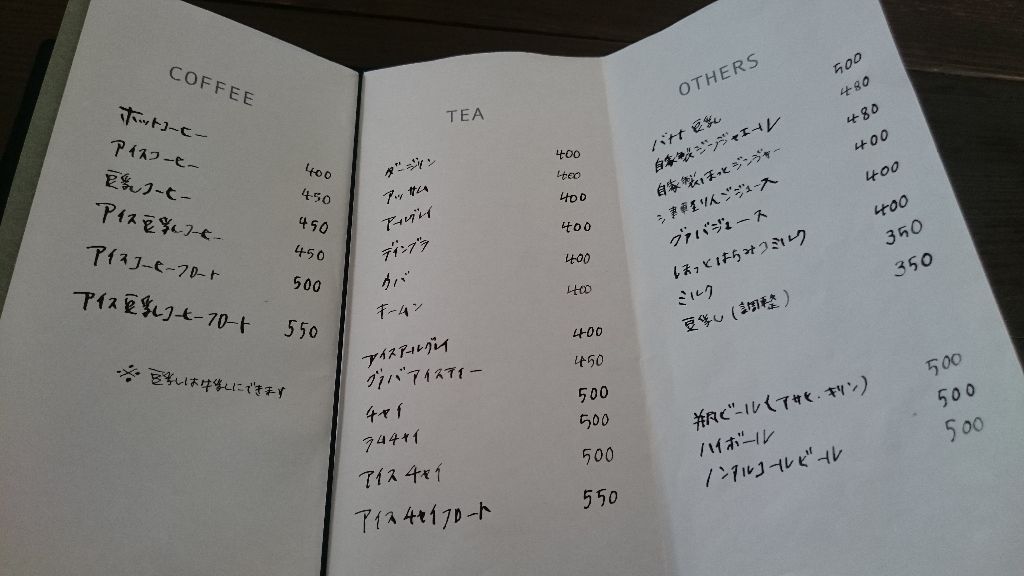 COFFEE
ホットコーヒー 400
アイスコーヒー 450
豆乳コーヒー 450
アイス豆乳コーヒー 450
アイスコーヒーフロート 500
アイス豆乳コーヒーフロート 550
※ 豆乳は牛乳にできます
TEA
ダージリン 400
アッサム 400
アールグレイ 400
ディンブラ 400
ウバ 400
キームン 400
アイスアールグレイ 400
グァバアイスティー 450
チャイ 500
ラムチャイ 500
アイスチャイ 500
アイスチャイフロート 550
OTHERS
バナナ豆乳 500
自家製ジンジャエール 480
自家製ほっとジンジャー 480
りんごジュース 400
グァバジュース 400
ほっとはちみつミルク 400
ミルク 350
豆乳(調整) 350
瓶ビール(アサヒ・キリン) 500
ハイボール 500
ノンアルコールビール 500